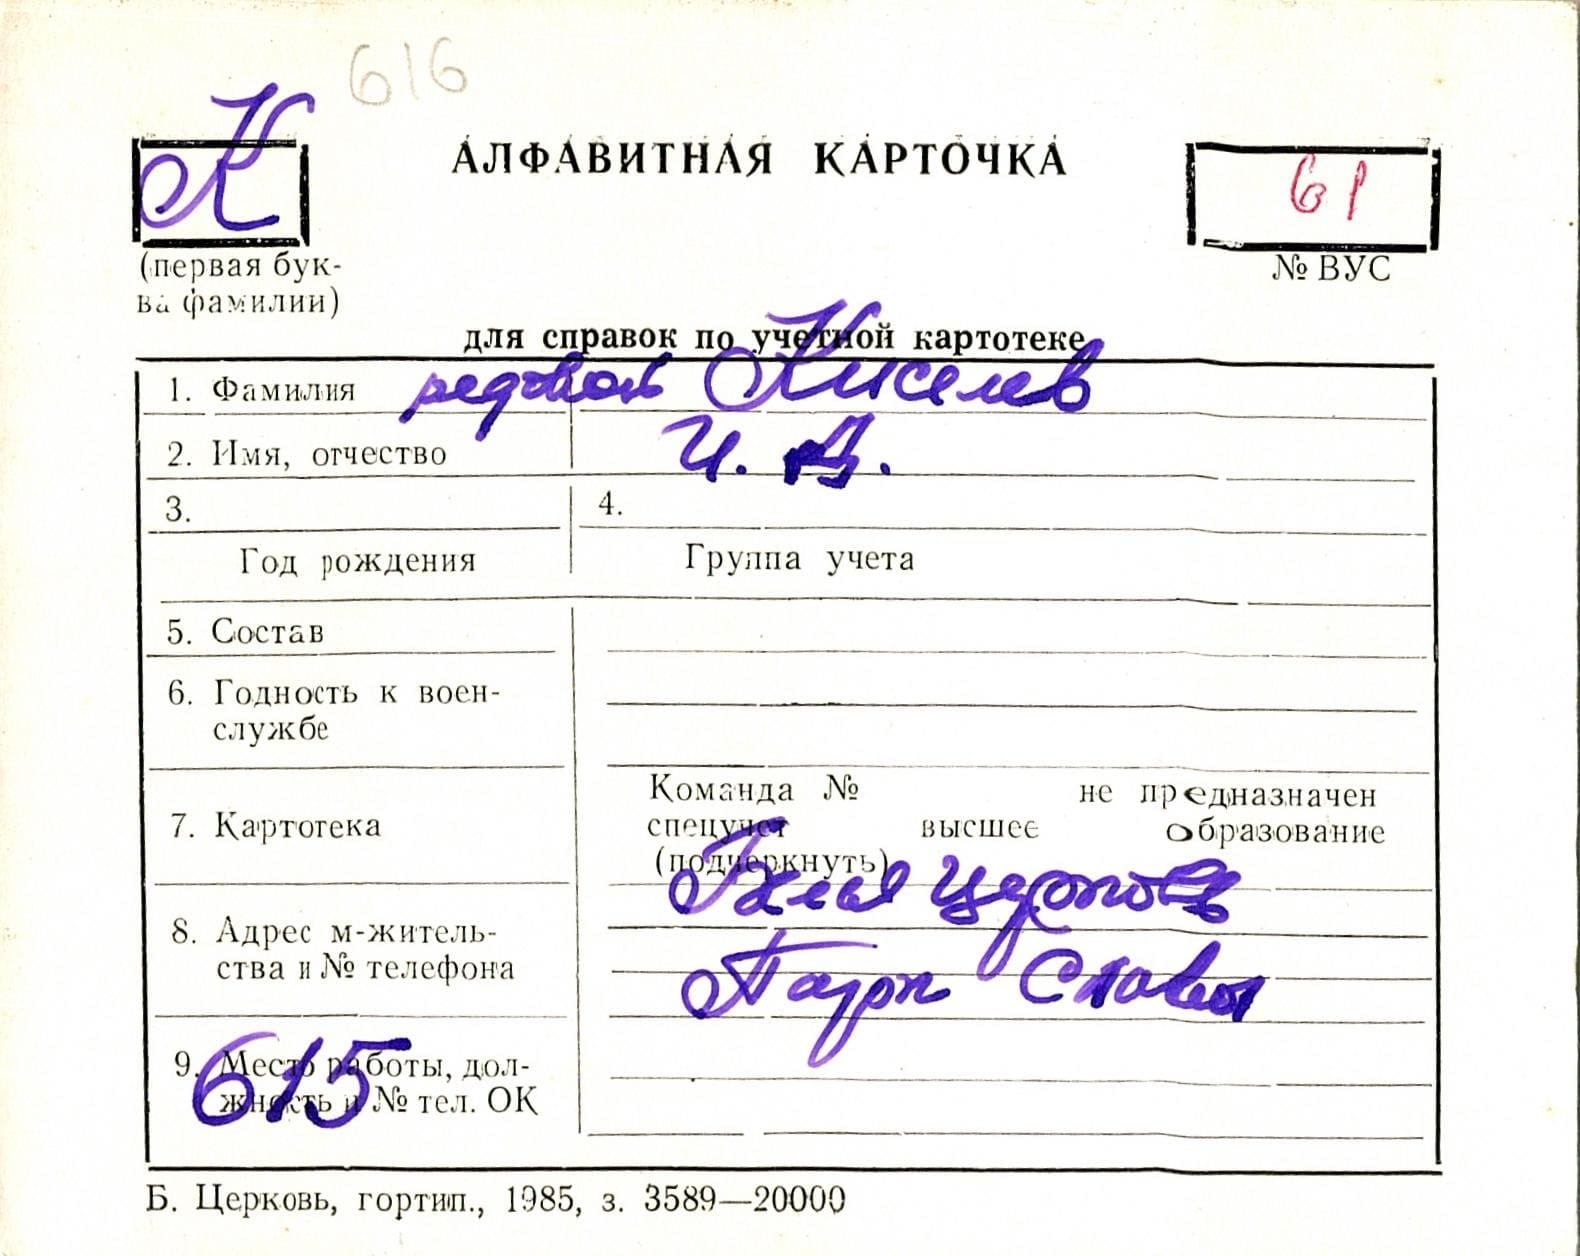 616
К
АЛФАВИТНАЯ КАРТОЧКА
61
(первая бук-
ва фамилии)
№ ВУС
для справок по учетной картотеке
1. Фамилия рядовой Киселев
2. Имя, отчество И. В.
3. 4.
Год рождения Группа учета
5. Состав
6. Годность к воен-
службе
Команда № не предназначен
7. Картотека спецучет высшее образование
(подчеркнуть)
Белая Церковь
8. Адрес м-житель-
ства и № телефона Парк Славы
9. Место работы, дол-
жность и № тел. ОК
615
Б. Церковь, гортип., 1985, з. 3589—20000